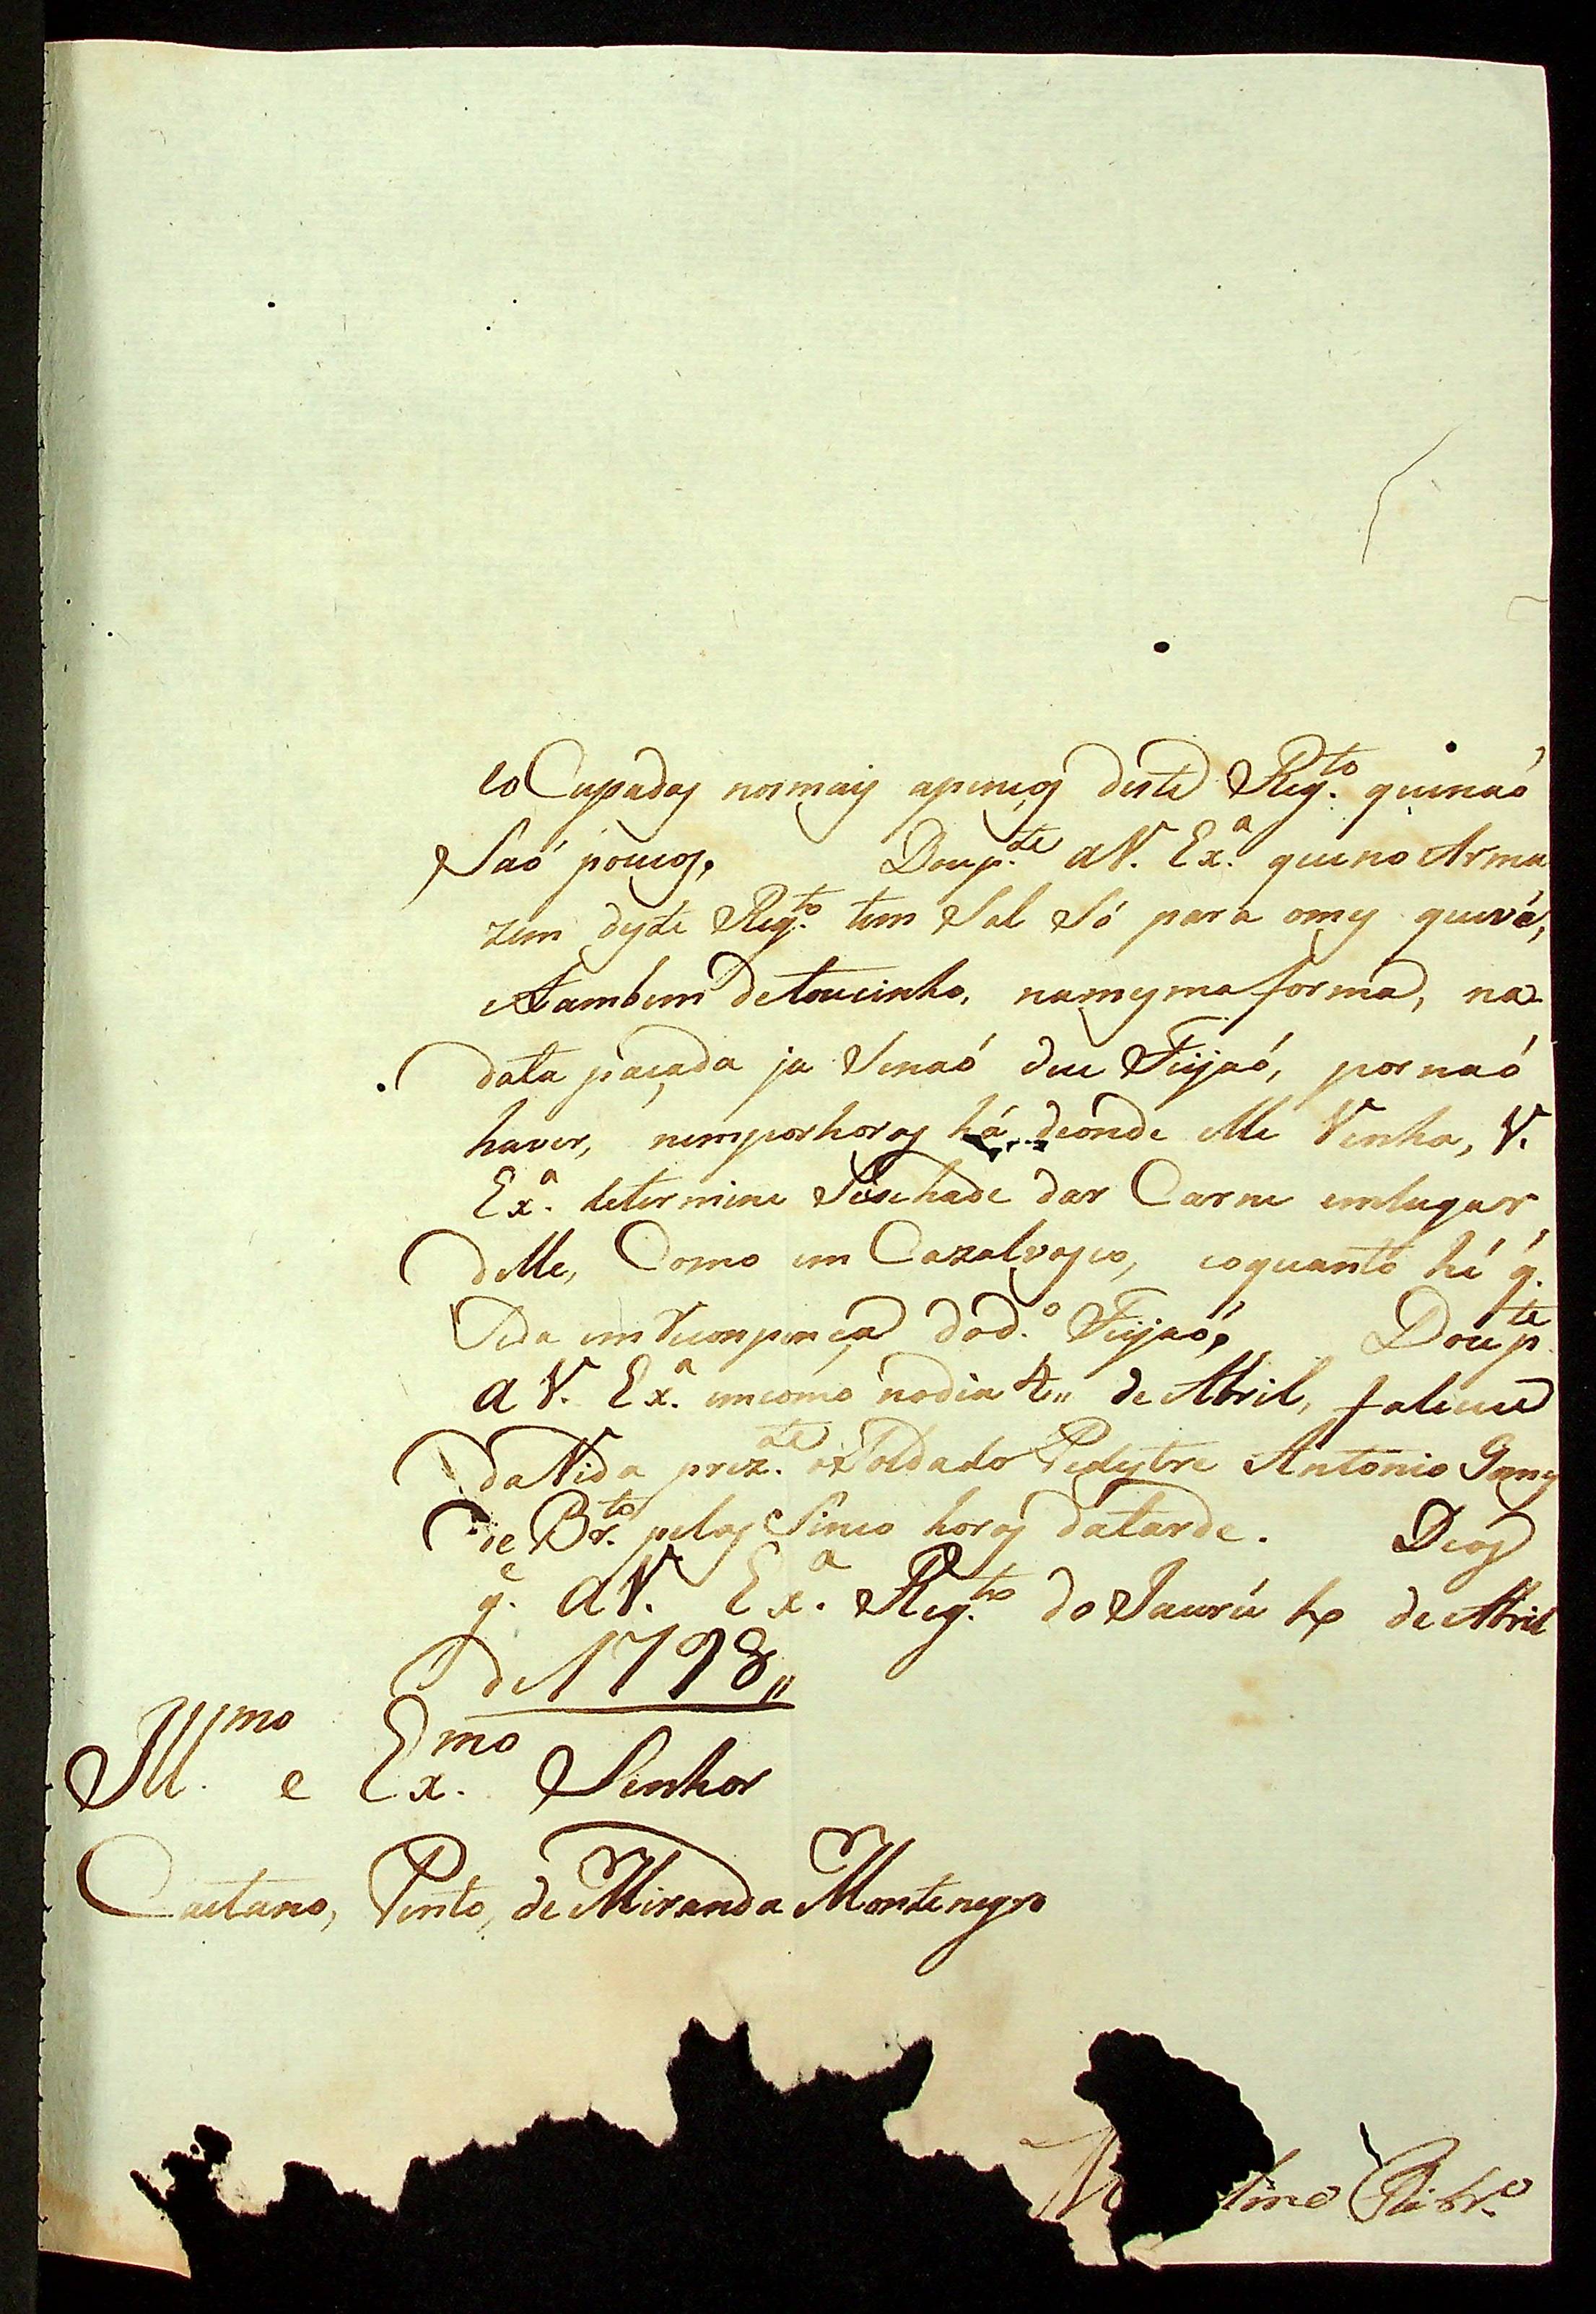 coCupadas nosmais apricos deste Reg.to quenaó
Saó poucos. Doup.te aV. Ex.a queno Arma
zem deste Reg.to tem Sal Só para omes quevê,
etambem detoucinho, namesmaforma, na
data paçada ja Senaó deu Feijaó, pornaó
haver, nemporhoras há deonde elle Venha, V.
Ex.a determine Sesehade dar Carne emlugar
delle, Como em Cazalvasco, eoquanto hé q.
Seda em Recompença dod.o Feijaó, Doup.te
a V. Ex.a emcomo nodia 4,, de Abril, faleceu
daVida prez.te oSoldado Pedestre Antonio Gomes
de Br.to pelas Sinco horas datarde. Deos
g.e aV. Ex.a Reg.to do Jaurú de Abril
de 1798,,
Ill.mo e Ex.mo Senhor
Caetano, Pinto, de Miranda Montenegro
tino Ribr.o